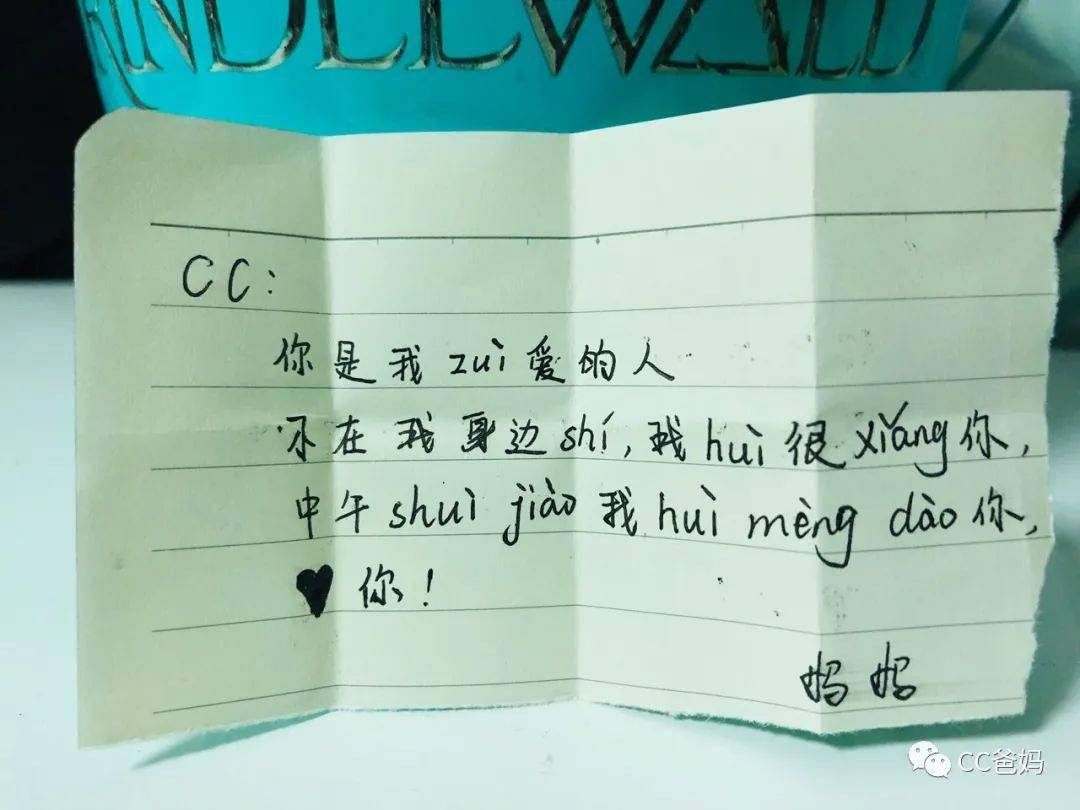 RINDELWALD
CC:
你是我zuì爱的人
不在我身边shí,我huì很xiǎng你,
中午shuì jiào我huì mèng dào你,
♥你!
妈妈
CC爸妈